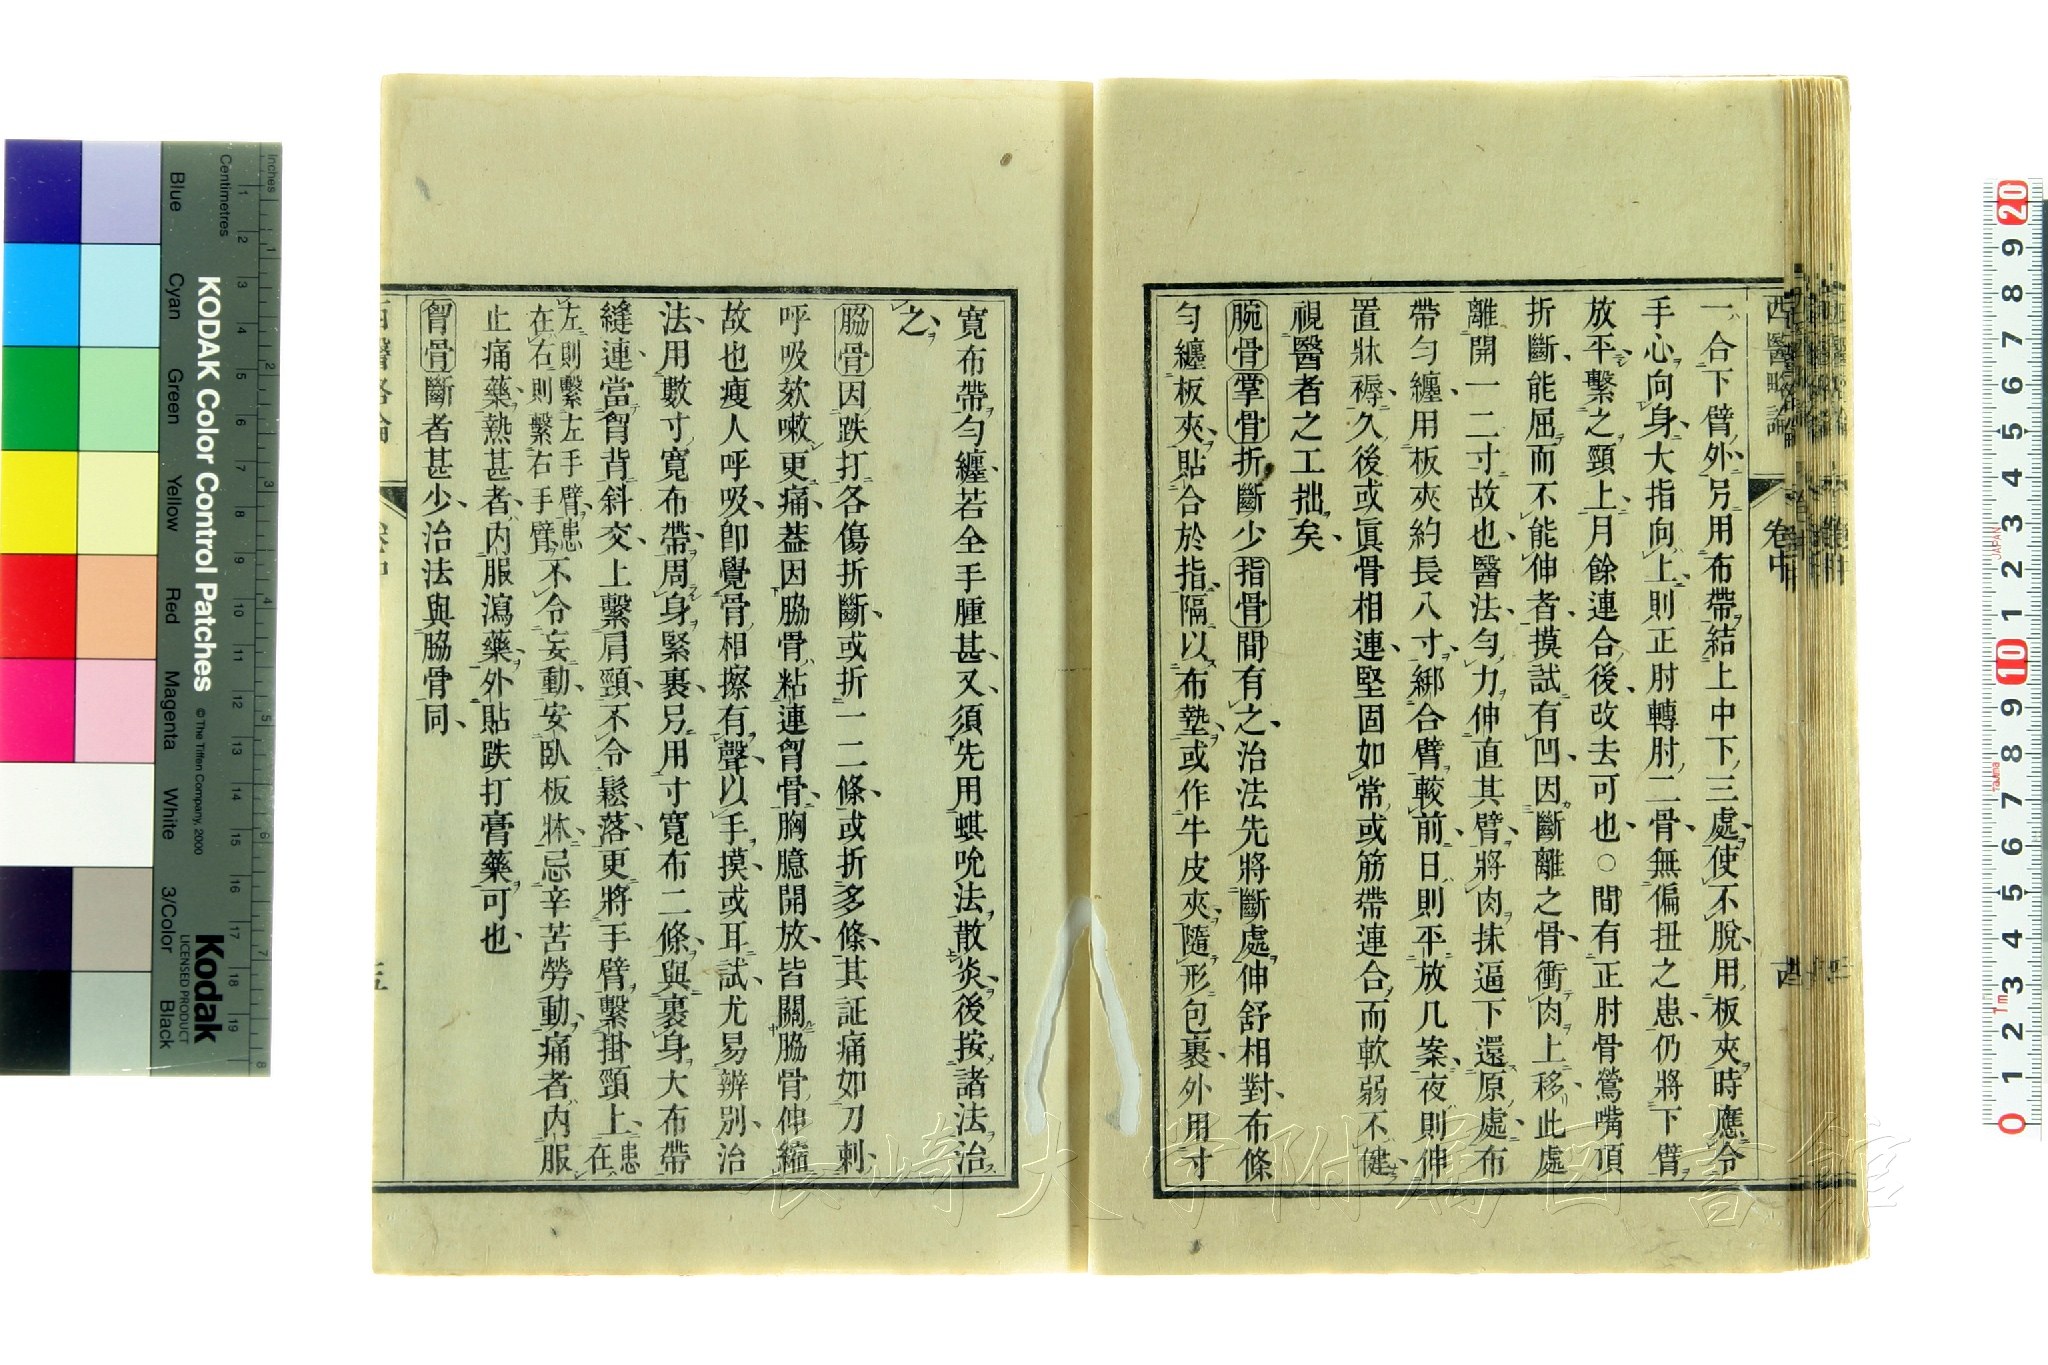 西醫略論
卷中
一合下臂外另用布帶結上中下三處使不脫用板夾時應令
手心向身大指向上則正肘轉肘二骨無偏扭之患仍將下臂
放平繫之頸上月餘連合後改去可也○間有正肘骨鶯嘴頂
折斷能屈而不能伸者摸試有凹因斷離之骨衝肉上移此處
離開一二寸故也醫法勻力伸直其臂將肉抹逼下還原處布
帶勻纏用板夾約長八寸綁合臂較前日則平放几案夜則伸
置牀褥久後或眞骨相連堅固如常或筋帶連合而軟弱不健
視醫者之工拙矣
腕骨掌骨折斷少指骨間有之治法先將斷處伸舒相對布條
勻纏板夾貼合於指隔以布墊或作牛皮夾隨形包裹外用寸
寬布帶勻纏若全手腫甚又須先用蜞吮法散炎後按諸法治
之
脇骨因跌打各傷折斷或折一二條或折多條其証痛如刀刺
呼吸欬嗽更痛葢因脇骨粘連胷骨胸臆開放皆關脇骨伸縮
故也瘦人呼吸卽覺骨相擦有聲以手摸或耳試尤易辨別治
法用數寸寬布帶周身緊裹另用寸寬布二條與裹身大布帶
縫連當胷背斜交上繫肩頸不令鬆落更將手臂繫掛頸上患在
左則繫左手臂患在右則繫右手臂不令妄動安臥板牀忌辛苦勞動痛者內服
止痛藥熱甚者內服瀉藥外貼跌打膏藥可也
胷骨斷者甚少治法與脇骨同
KODAK Color Control Patches
© The Tiffen Company, 2000
Kodak
LICENSED PRODUCT
Inches
Centimetres
Blue
Cyan
Green
Yellow
Red
Magenta
White
3/Color
Black
長崎大学附属図書館